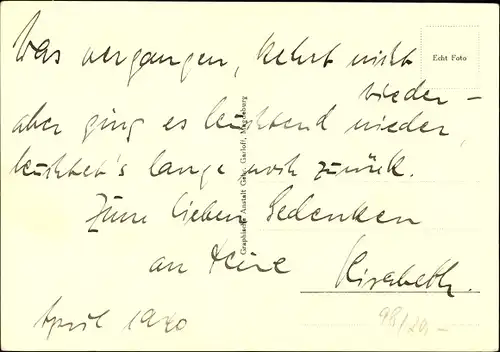 Was vergangen, kehrt nicht
wieder –
aber ging es leuchtend nieder,
leuchtet's lange noch zurück.
Zum lieben Gedenken
an Deine
Elisabeth.
April 1940
Echt Foto
Graphische Anstalt Gebr. Garloff, Magdeburg